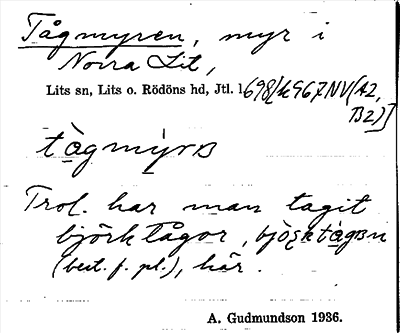 Tågmyren, myr i
Norra Lit,
Lits sn, Lits o. Rödöns hd, Jtl. 1698[19G7NV(A2,
B2)]
tågmýrɴ
Trol. har man tagit
björktågor,
(best. f. pl.), här.
A. Gudmundson 1936.